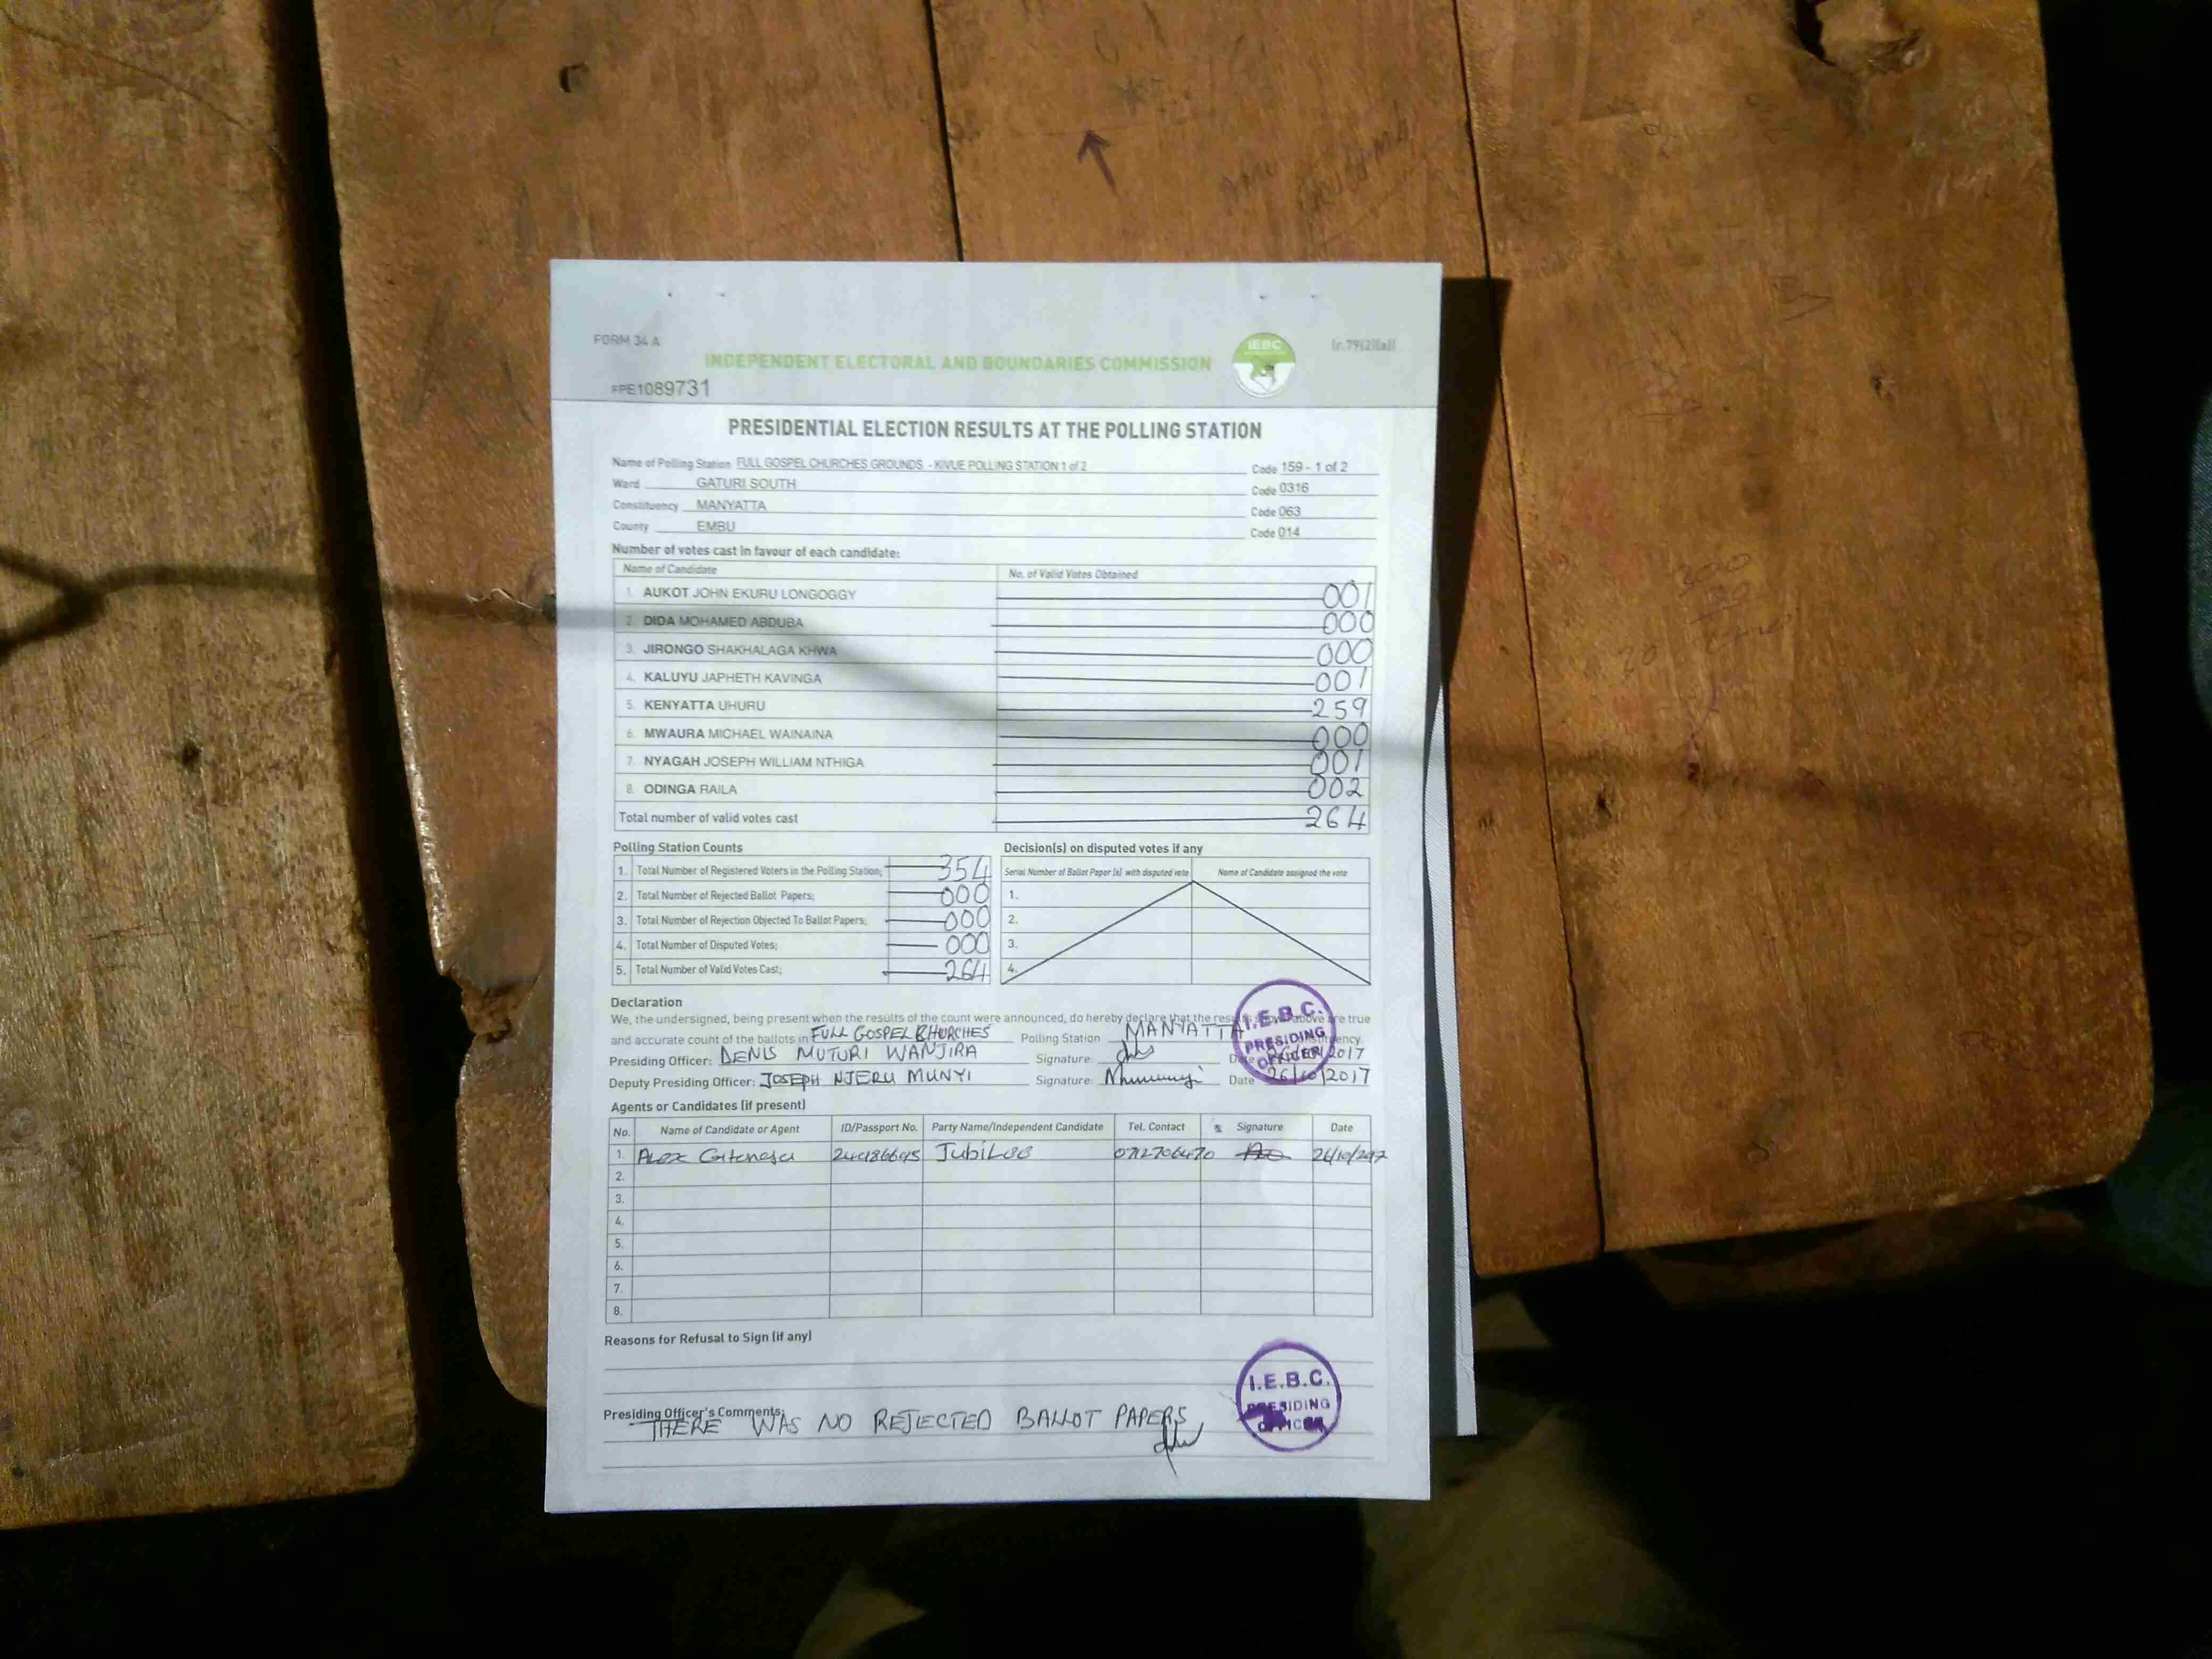 FORM 34 A
IEBC
(r.79(2)(a))
INDEPENDENT ELECTORAL AND BOUNDARIES COMMISSION
FPE1089731
PRESIDENTIAL ELECTION RESULTS AT THE POLLING STATION
Name of Polling Station FULL GOSPEL CHURCHES GROUNDS - KIVUE POLLING STATION 1 of 2 Code 159 - 1 of 2
Ward GATURI SOUTH Code 0316
Constituency MANYATTA Code 063
County EMBU Code 014
Number of votes cast in favour of each candidate:
Name of Candidate No. of Valid Votes Obtained
1. AUKOT JOHN EKURU LONGOGGY 001
2. DIDA MOHAMED ABDUBA 000
3. JIRONGO SHAKHALAGA KHWA 000
4. KALUYU JAPHETH KAVINGA 001
5. KENYATTA UHURU 259
6. MWAURA MICHAEL WAINAINA 000
7. NYAGAH JOSEPH WILLIAM NTHIGA 001
8. ODINGA RAILA 002
Total number of valid votes cast 264
Polling Station Counts
1. Total Number of Registered Voters in the Polling Station; 354
2. Total Number of Rejected Ballot Papers; 000
3. Total Number of Rejection Objected To Ballot Papers; 000
4. Total Number of Disputed Votes; 000
5. Total Number of Valid Votes Cast; 264
Decision(s) on disputed votes if any
Serial Number of Ballot Paper (s) with disputed vote Name of Candidate assigned the vote
1.
2.
3.
4.
Declaration
We, the undersigned, being present when the results of the count were announced, do hereby declare that the results above are true
and accurate count of the ballots in FULL GOSPEL CHURCHES Polling Station MANYATTA
Presiding Officer: DENIS MUTURI WANJIRA Signature: Date 2017
Deputy Presiding Officer: JOSEPH NJERU MUNYI Signature: Date 26/10/2017
I.E.B.C.
PRESIDING
OFFICER
Agents or Candidates (if present)
No. Name of Candidate or Agent ID/Passport No. Party Name/Independent Candidate Tel. Contact Signature Date
1. Alex Jubilee 0712706470
2.
3.
4.
5.
6.
7.
8.
Reasons for Refusal to Sign (if any)
Presiding Officer's Comments:
THERE WAS NO REJECTED BALLOT PAPERS
I.E.B.C.
PRESIDING